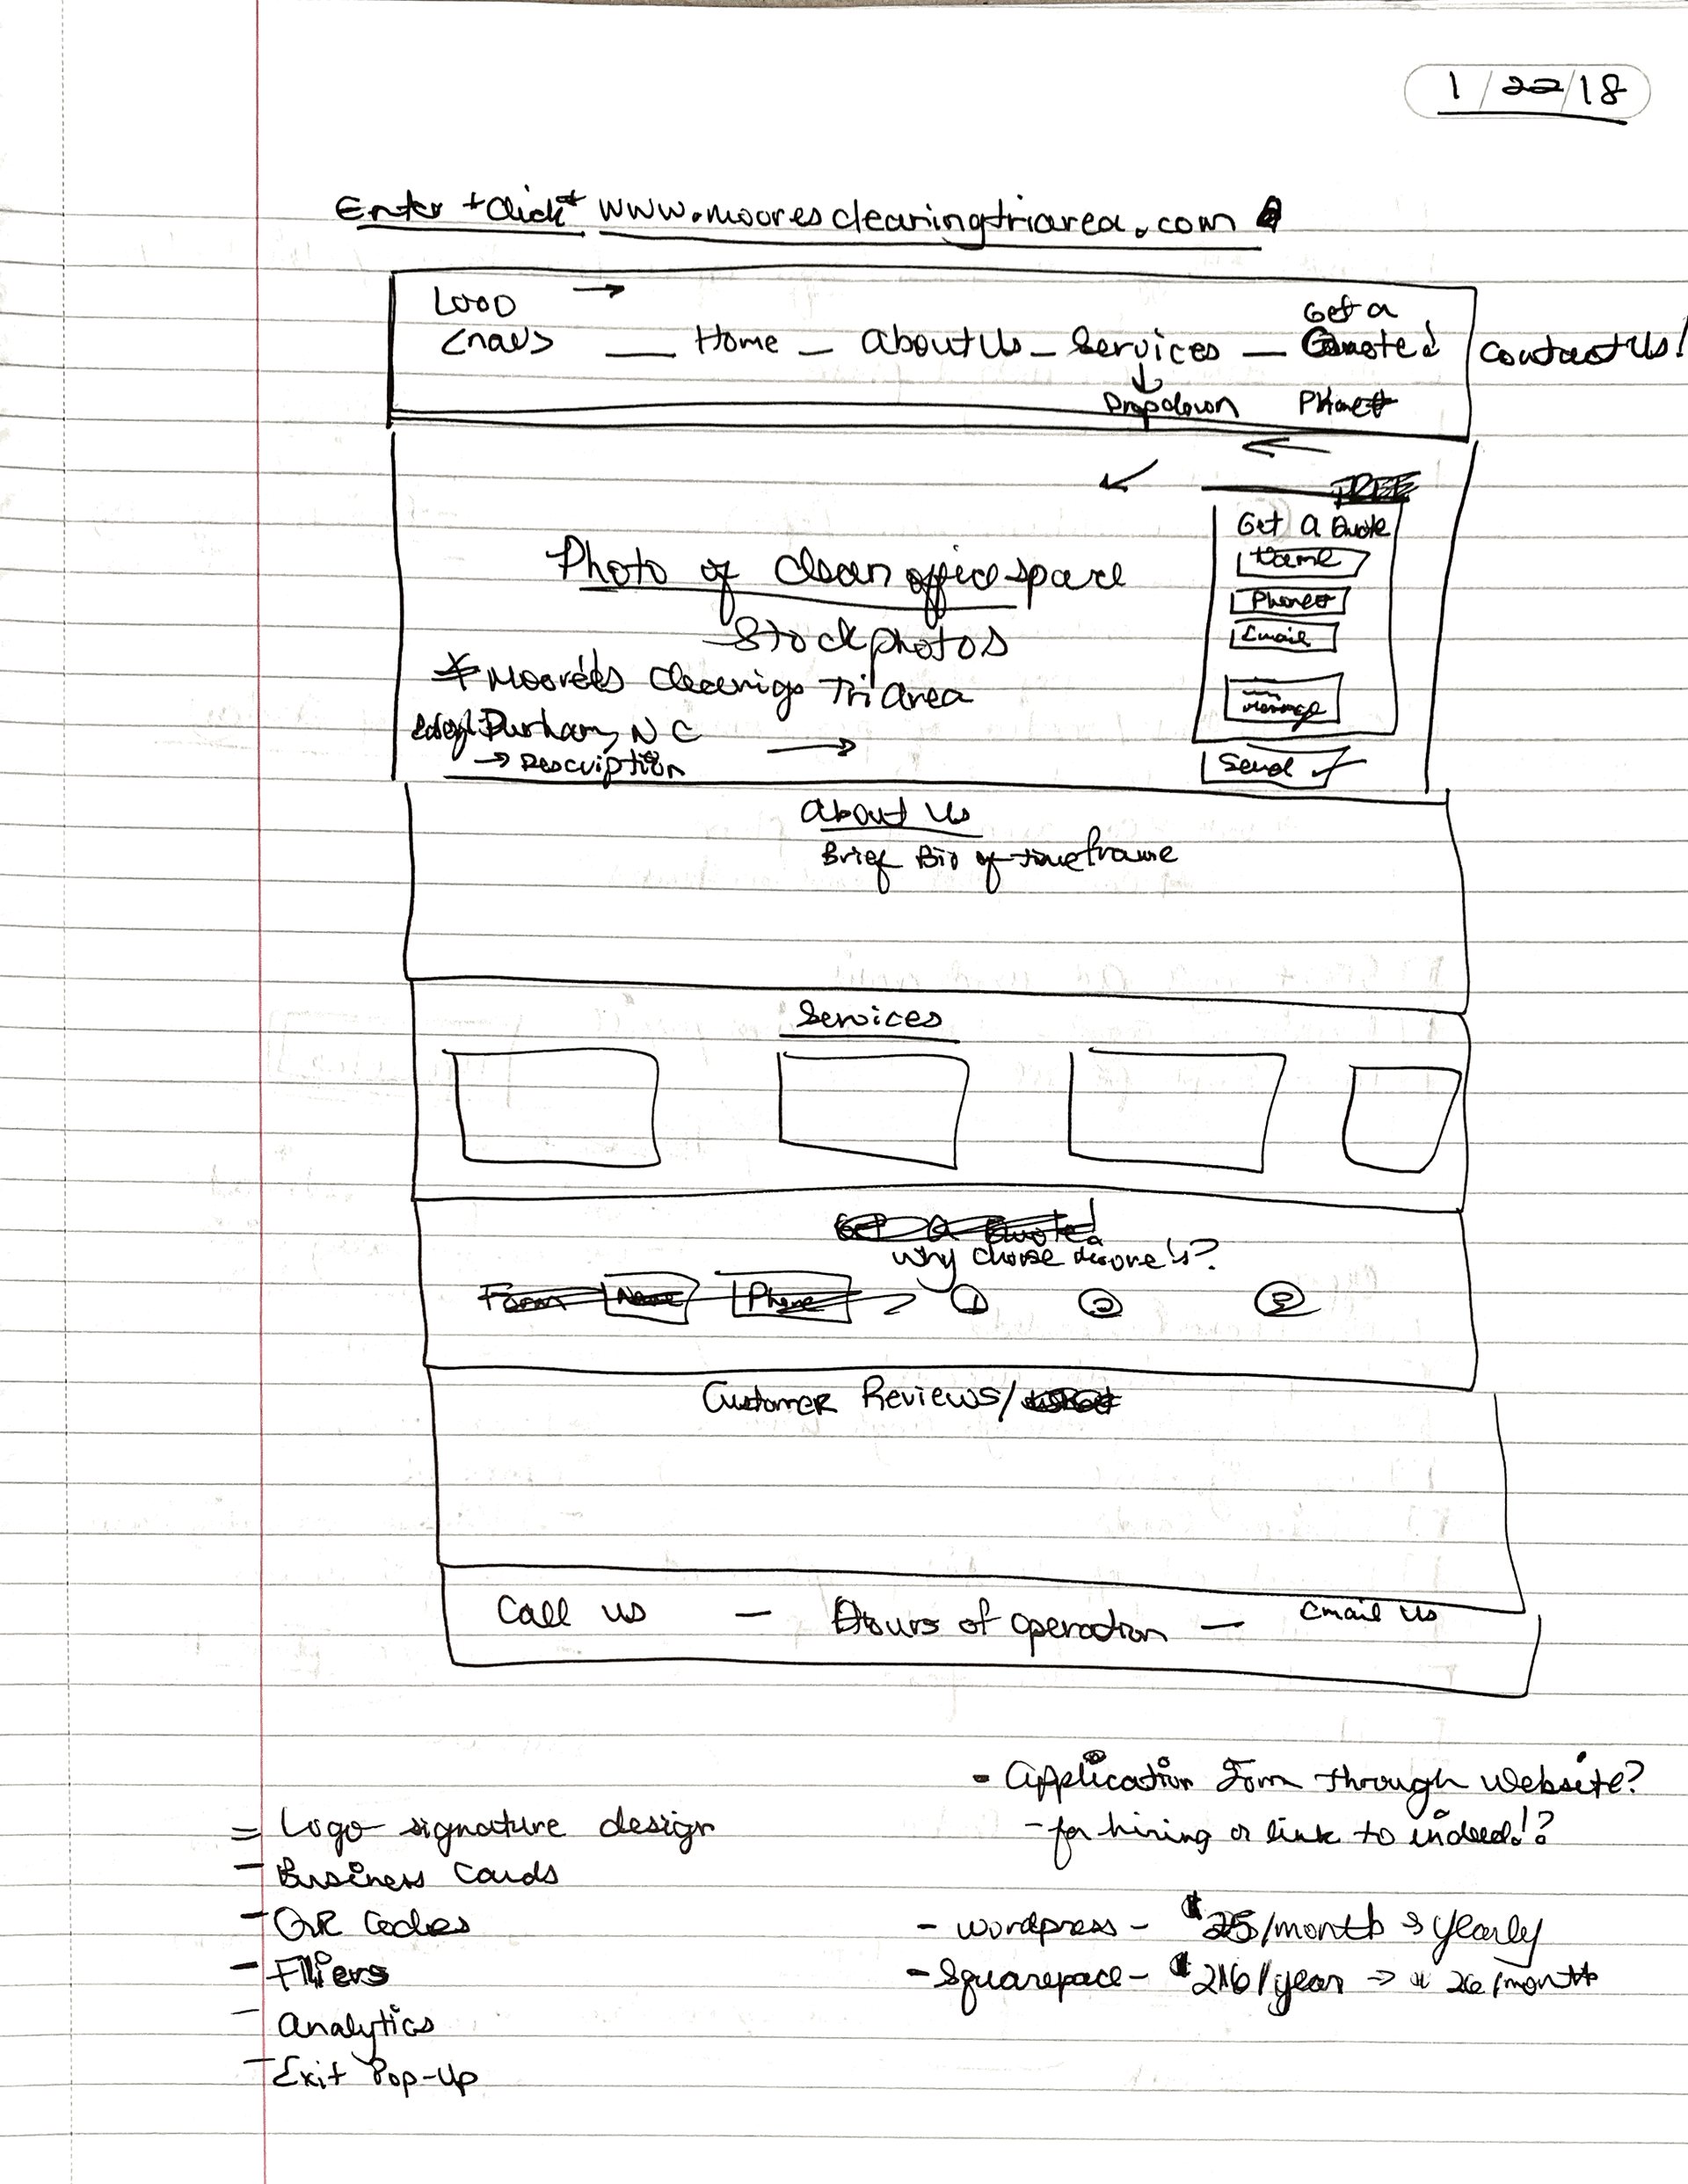 1/22/18
Enter *Click* www.moorescleaningtriarea.com
LOGO
<nav> Home - About Us - Services - Get a Quote! Contact Us!
Dropdown Phone#
FREE
Get A Quote
Name
Phone#
Email
Message
Send
Photo of Clean office space
Stock photos
* Moore's Cleanings Tri Area
Durham, NC
→ Description
About Us
Brief Bio of timeframe
Services
Get A Quote!
Why choose Moore's?
Form Name Phone ① ② ③
Customer Reviews/
Call us - Hours of operation - Email Us
- Application Form through website?
- for hiring or link to indeed!?
= Logo signature design
- Business Cards
- QR Codes
- Fliers
- Analytics
- Exit Pop-Up
- Wordpress - $25/month yearly
- Squarespace - $216/year → 26/month